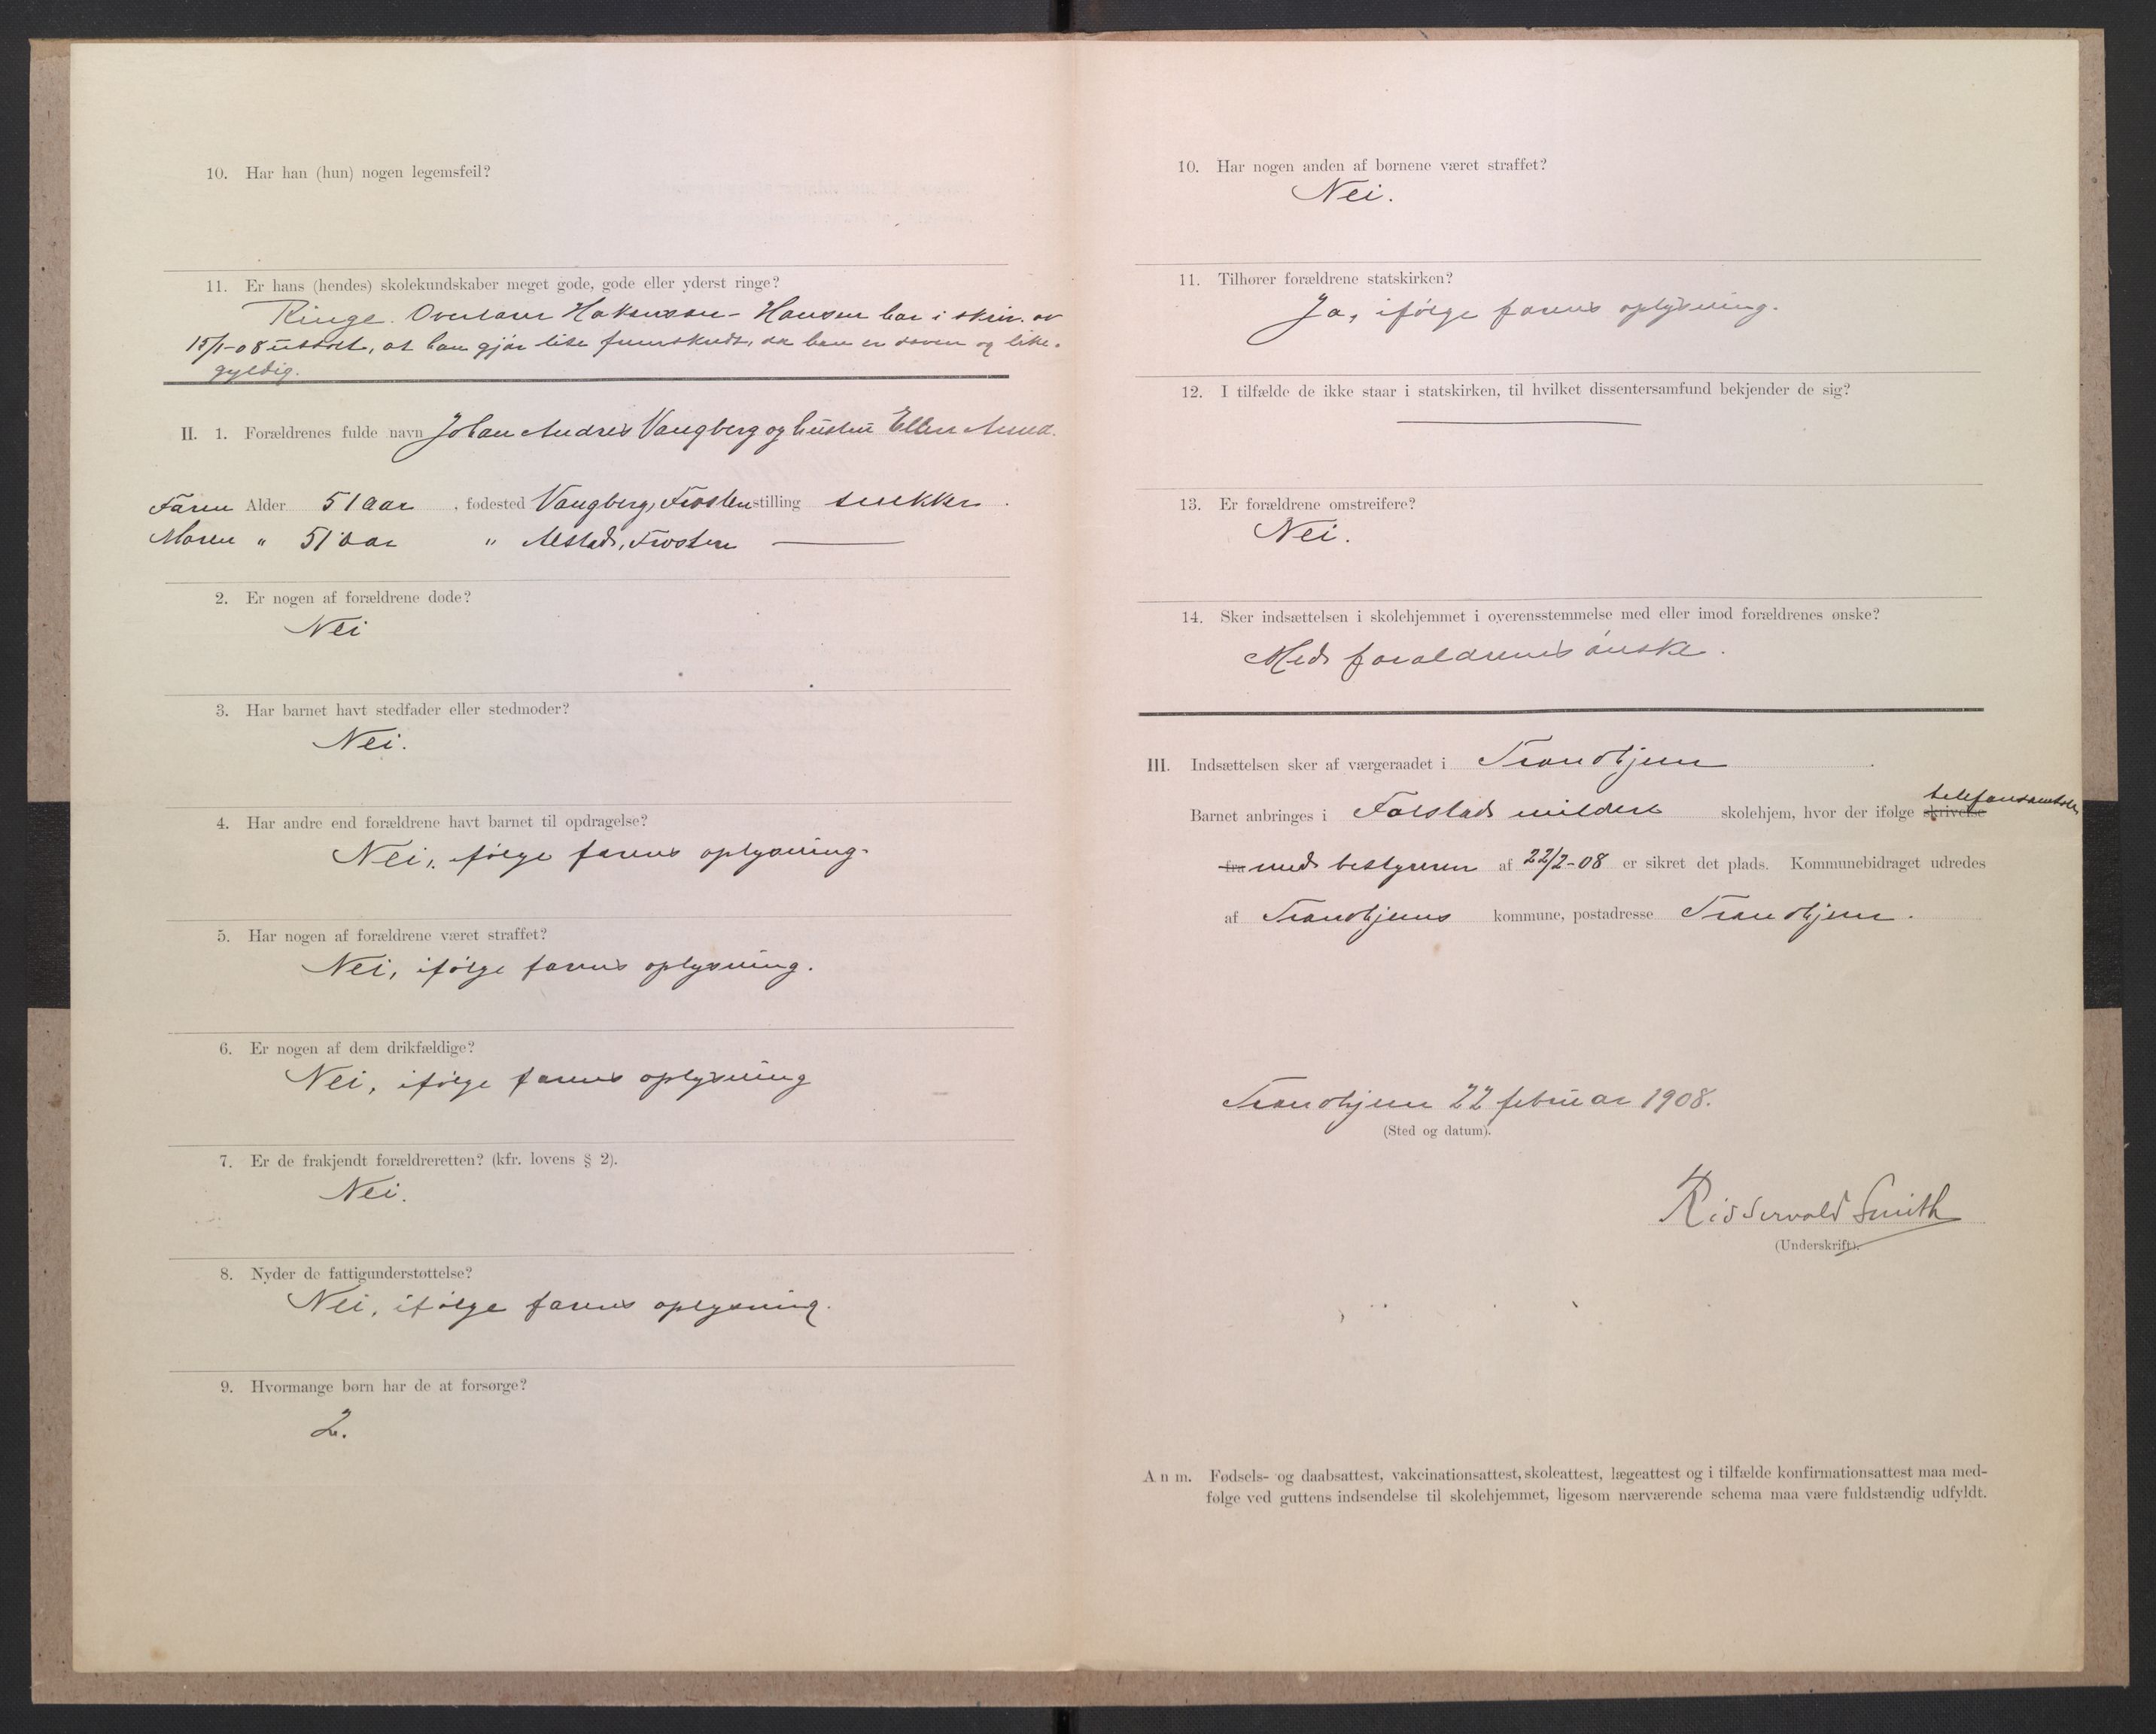 10. Har han (hun) nogen legemsfeil?
11. Er hans (hendes) skolekundskaber meget gode, gode eller yderst ringe?
Ringe. Overlærer Hakonson-Hansen har i skriv. av
15/1-08 uttalt, at han gjør lite fremskridt, da han er doven og like-
gyldig.
II. 1. Forældrenes fulde navn Johan Andreas Vangberg og hustru Ellen Anna.
Faren Alder 51 aar, fødested Vangberg, Frosten stilling snekker.
Moren " 51 aar " Alstad, Frosten —
2. Er nogen af forældrene døde?
Nei
3. Har barnet havt stedfader eller stedmoder?
Nei.
4. Har andre end forældrene havt barnet til opdragelse?
Nei, ifølge farens oplysning.
5. Har nogen af forældrene været straffet?
Nei, ifølge farens oplysning.
6. Er nogen af dem drikfældige?
Nei, ifølge farens oplysning
7. Er de frakjendt forældreretten? (kfr. lovens § 2).
Nei.
8. Nyder de fattigunderstøttelse?
Nei, ifølge farens oplysning.
9. Hvormange børn har de at forsørge?
2.
10. Har nogen anden af børnene været straffet?
Nei.
11. Tilhører forældrene statskirken?
Ja, ifølge farens oplysning.
12. I tilfælde de ikke staar i statskirken, til hvilket dissentersamfund bekjender de sig?
13. Er forældrene omstreifere?
Nei.
14. Sker indsættelsen i skolehjemmet i overensstemmelse med eller imod forældrenes ønske?
Med forældrenes ønske.
III. Indsættelsen sker af værgeraadet i Trondhjem
telefonsamtale
Barnet anbringes i Falstad mildere skolehjem, hvor der ifølge skrivelse
fra med bestyreren af 22/2-08 er sikret det plads. Kommunebidraget udredes
af Trondhjems kommune, postadresse Trondhjem.
Trondhjem 22 februar 1908.
(Sted og datum).
Ridservold Smith
(Underskrift).
Anm. Fødsels- og daabsattest, vakcinationsattest, skoleattest, lægeattest og i tilfælde konfirmationsattest maa med-
følge ved guttens indsendelse til skolehjemmet, ligesom nærværende schema maa være fuldstændig udfyldt.